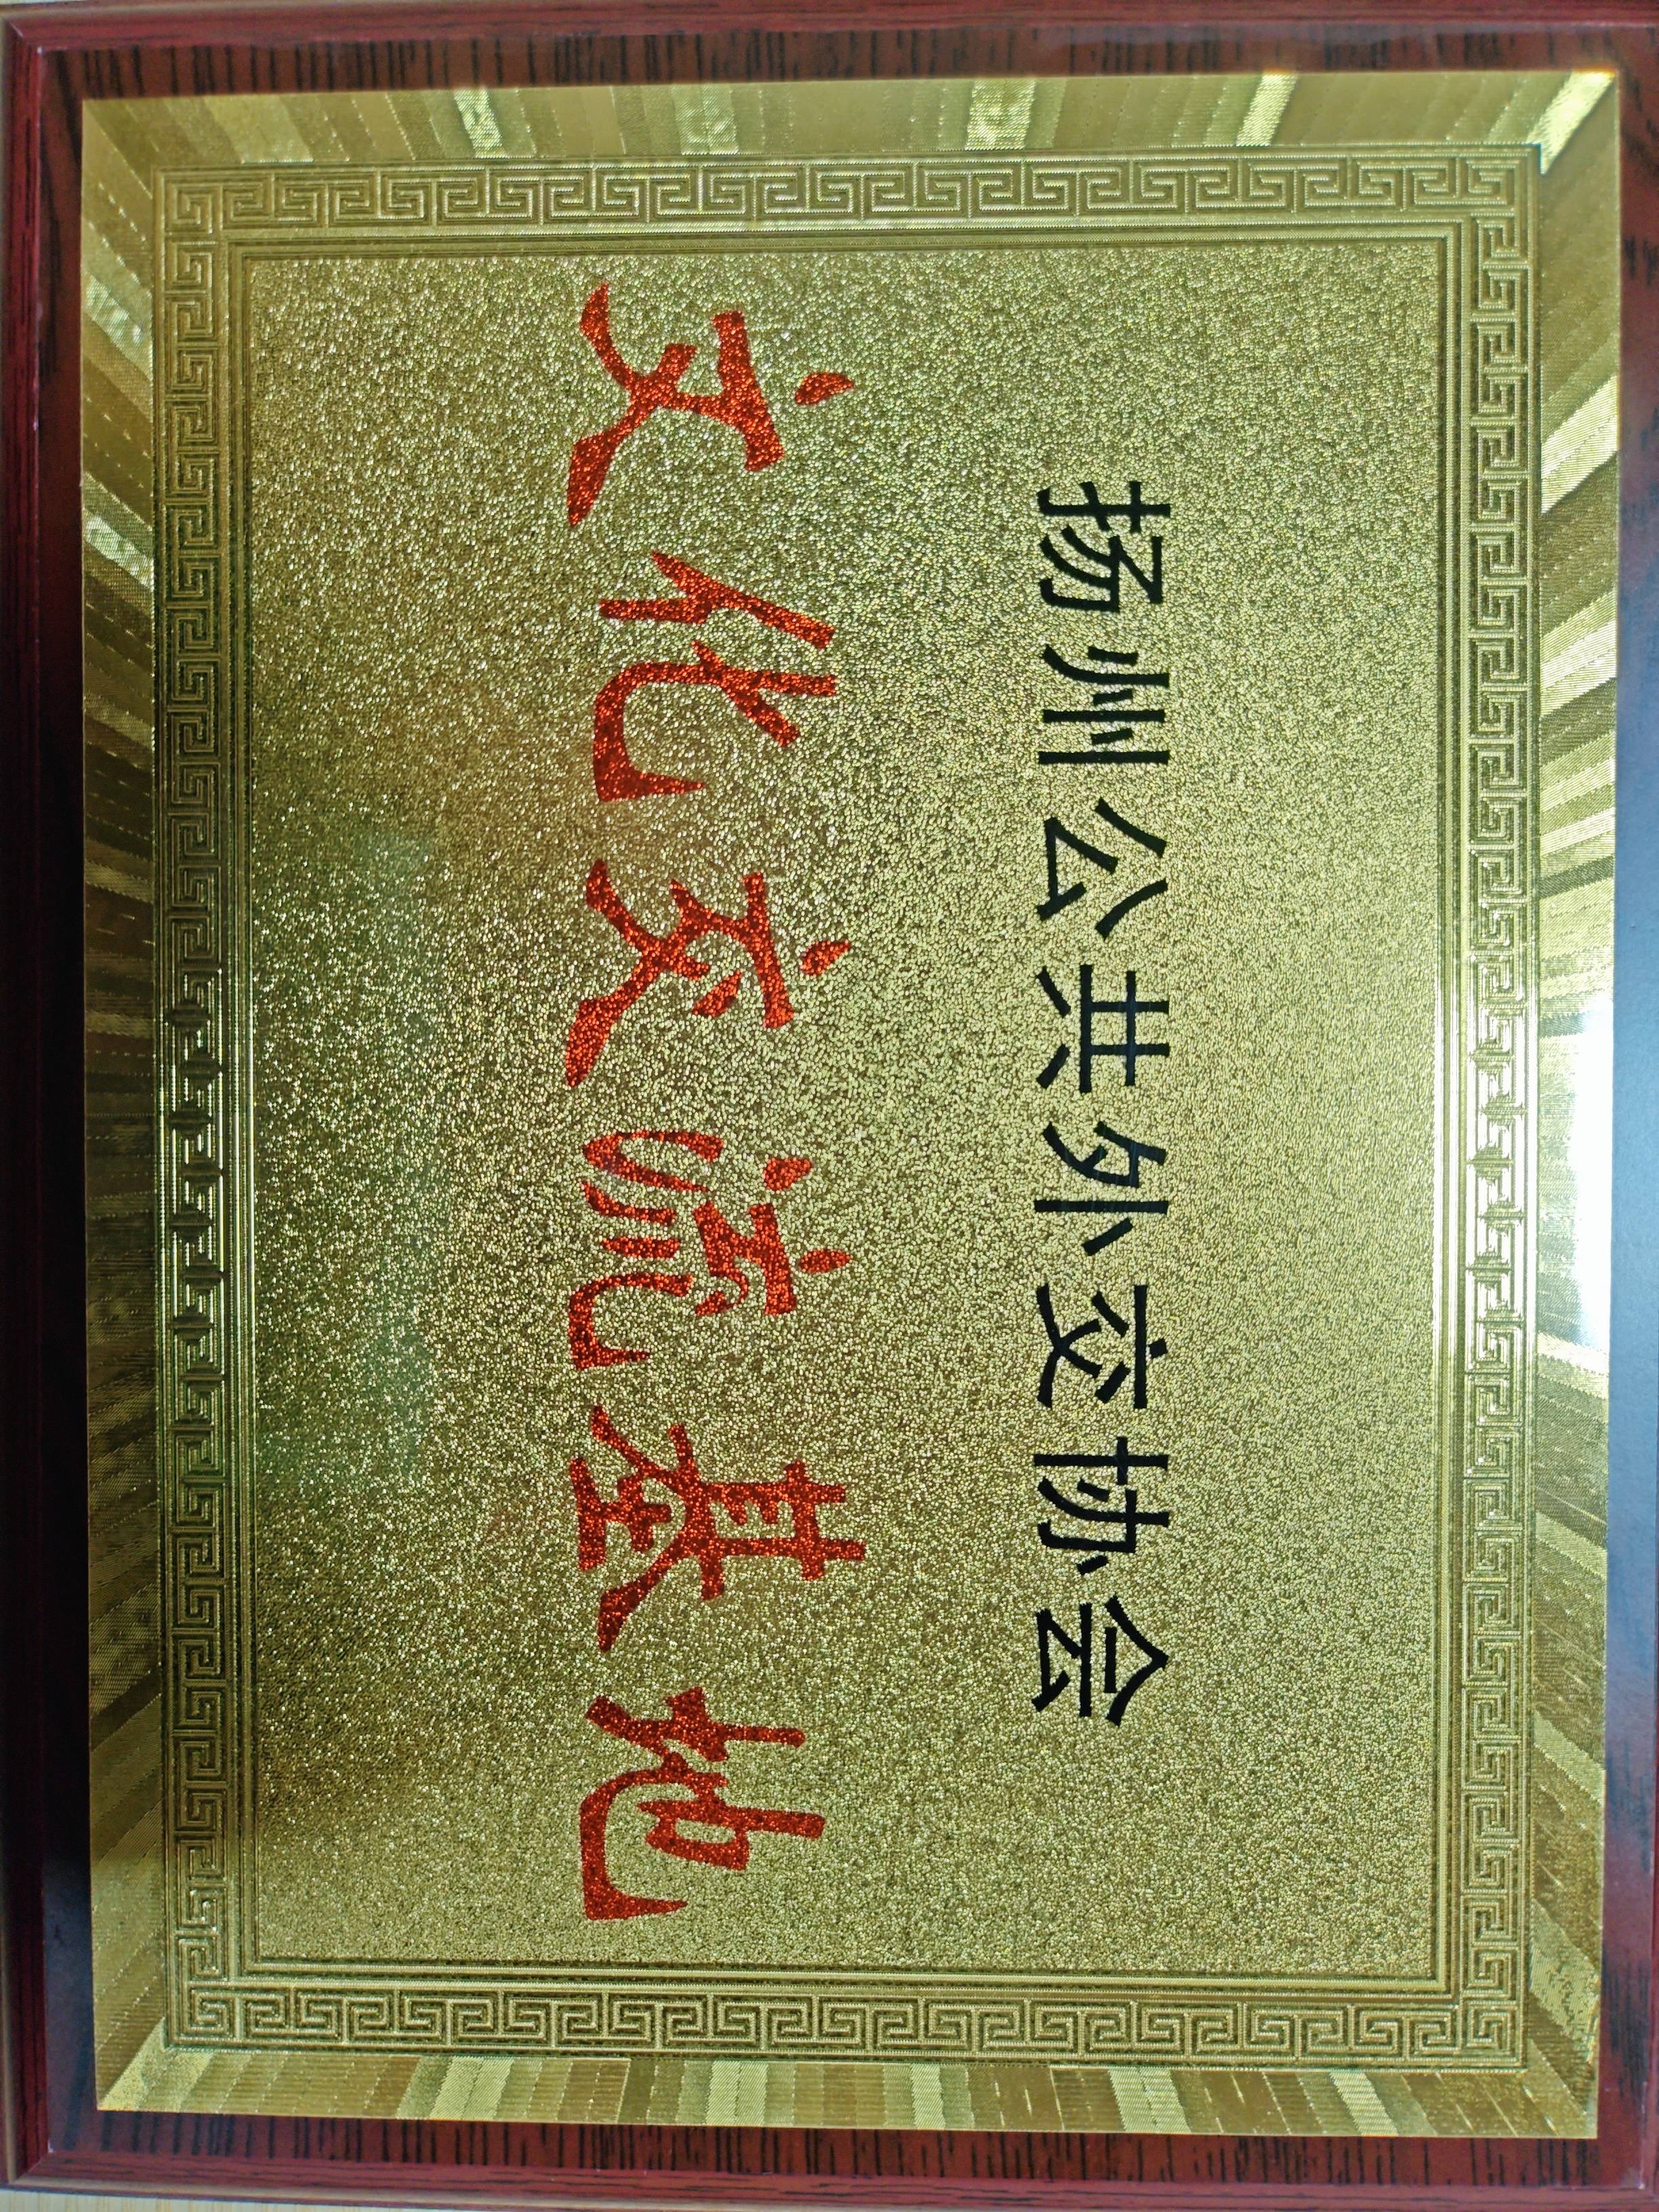 扬州公共外交协会
文化交流基地